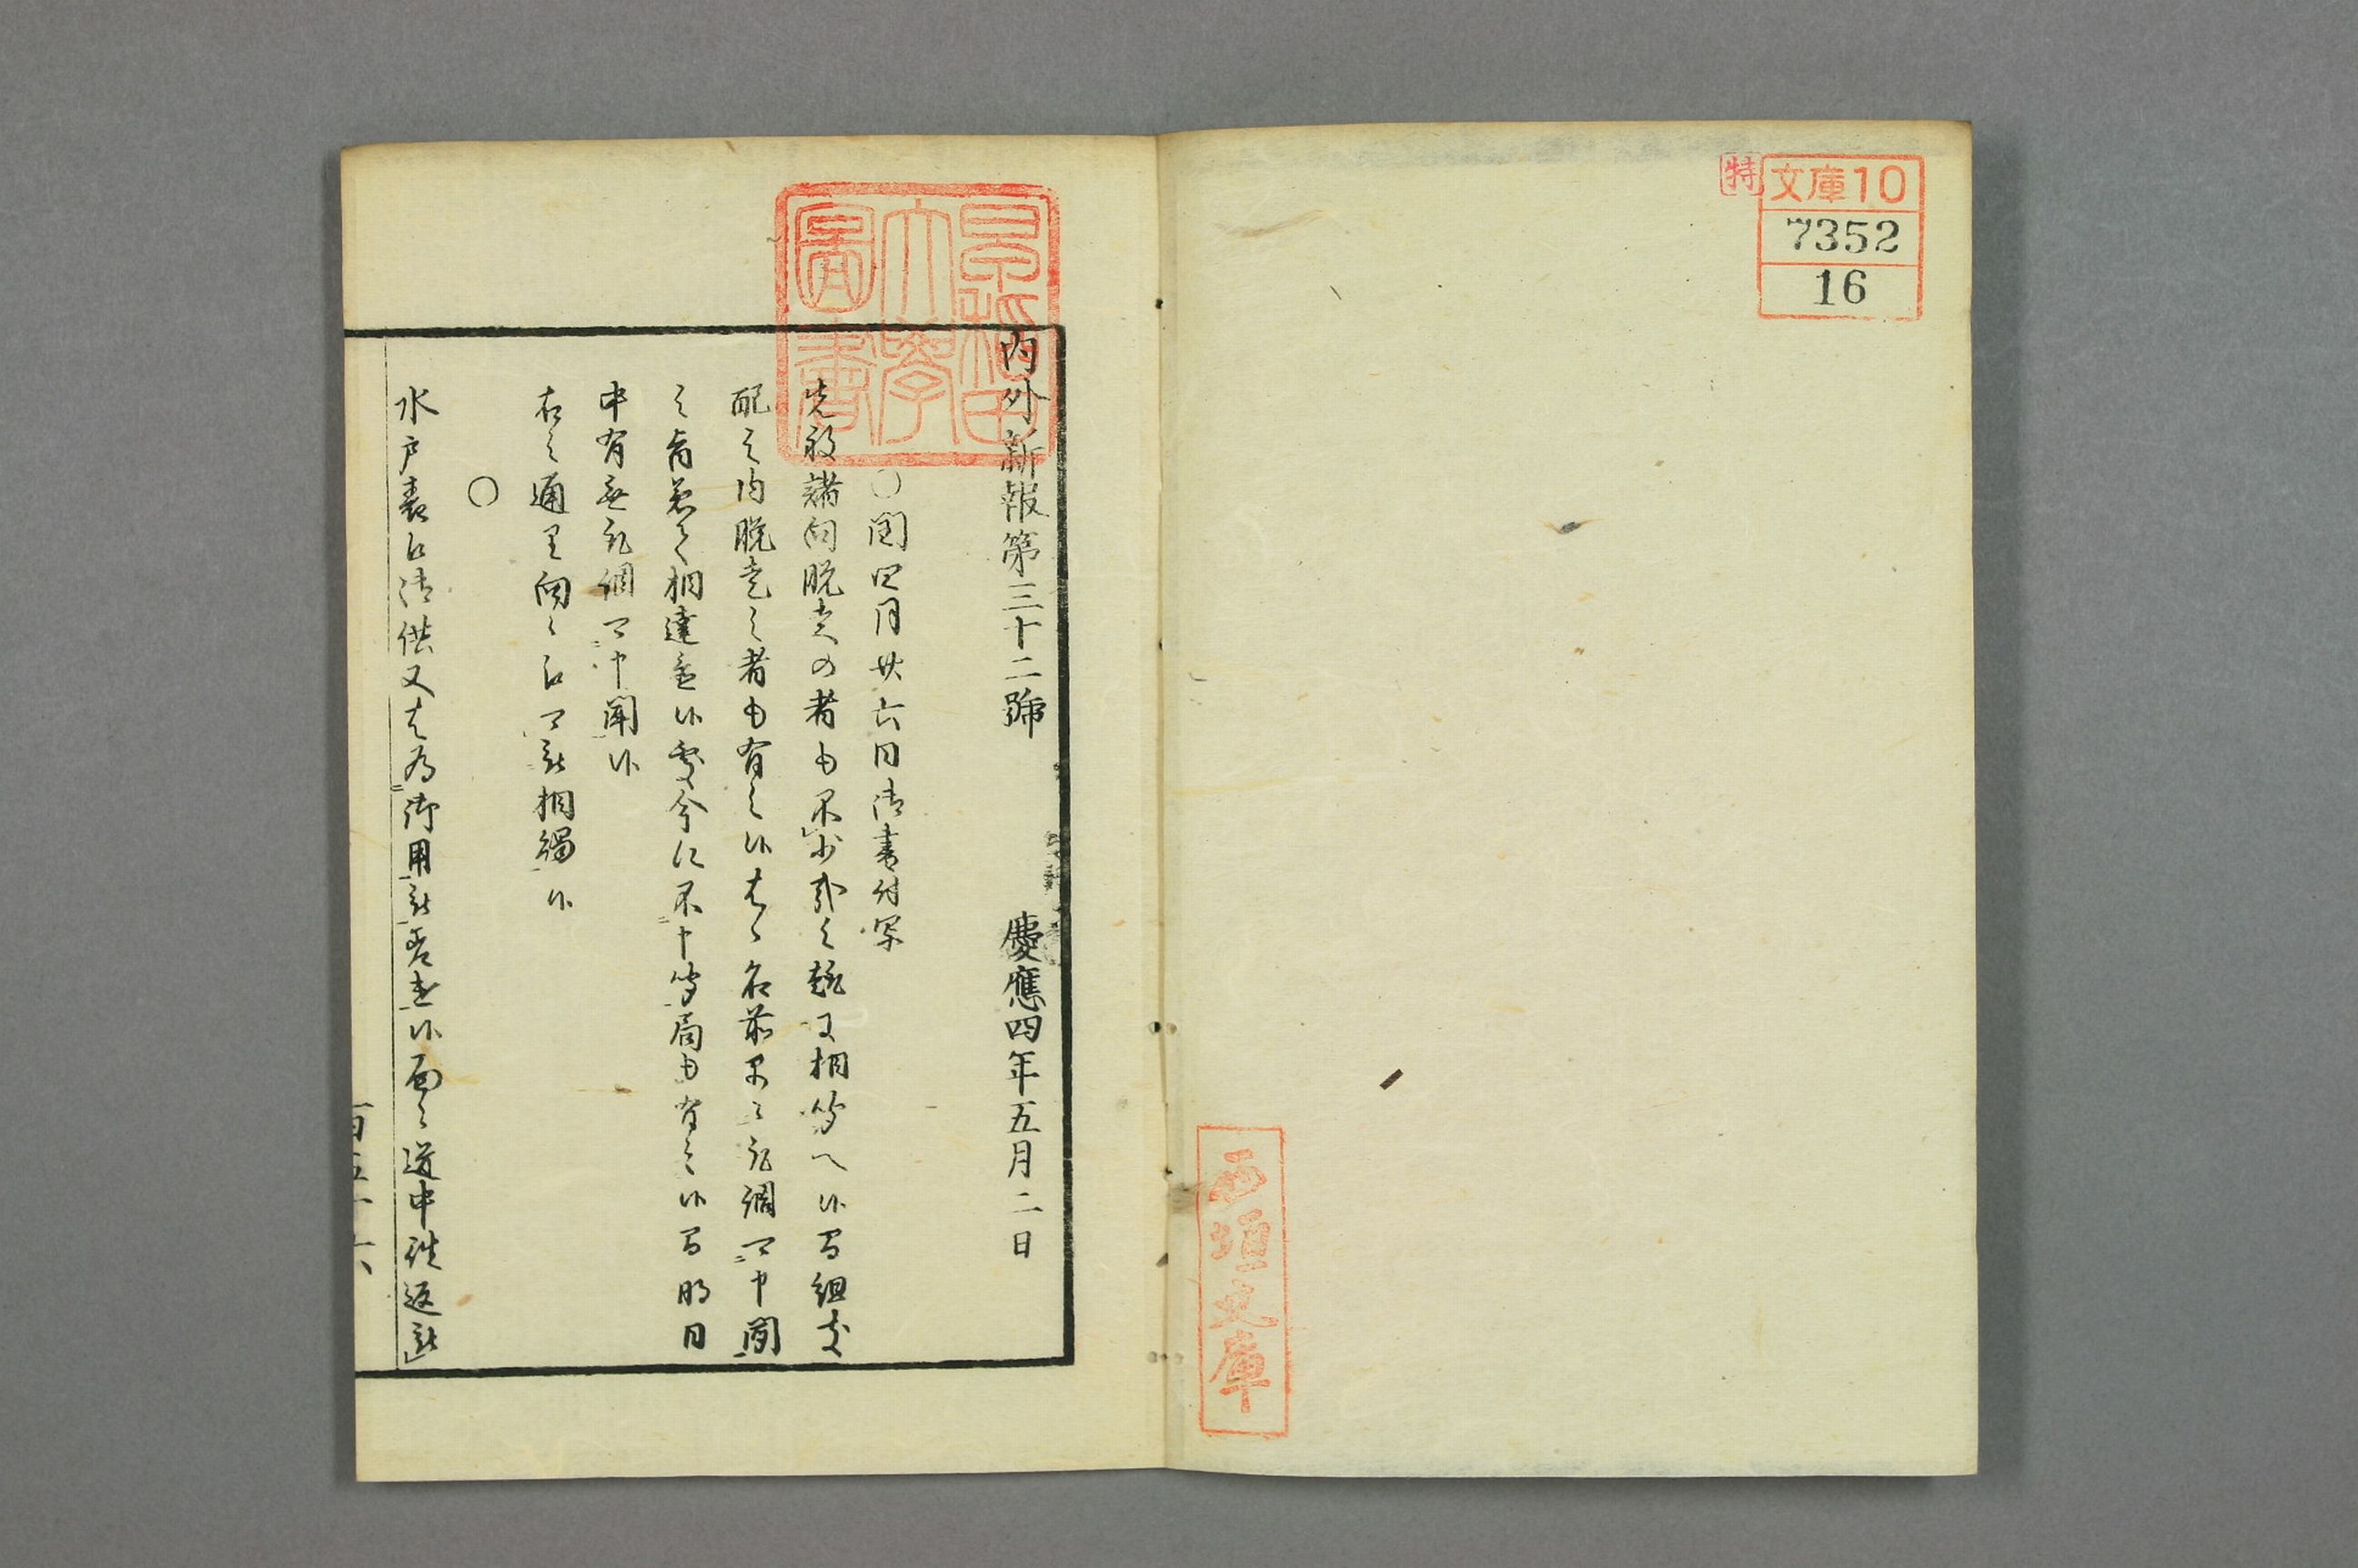 特
文庫10
7352
16
西垣文庫
早稲田大學圖書
内外新報第三十二號　慶應四年五月二日
○閏四月廿六日御書付写
先般諸向脱走の者も不少哉之趣に相聞へ候間組支
配之内脱走之者も有之候はゝ名前早々取調可申聞
之旨兼て相達置候処今に不申聞局も有之候間明日
中有無取調可申聞候
右之通り向々江可被相觸候
○
水戸表江御供又は為御用被差遣候面々道中往返被
百五十六